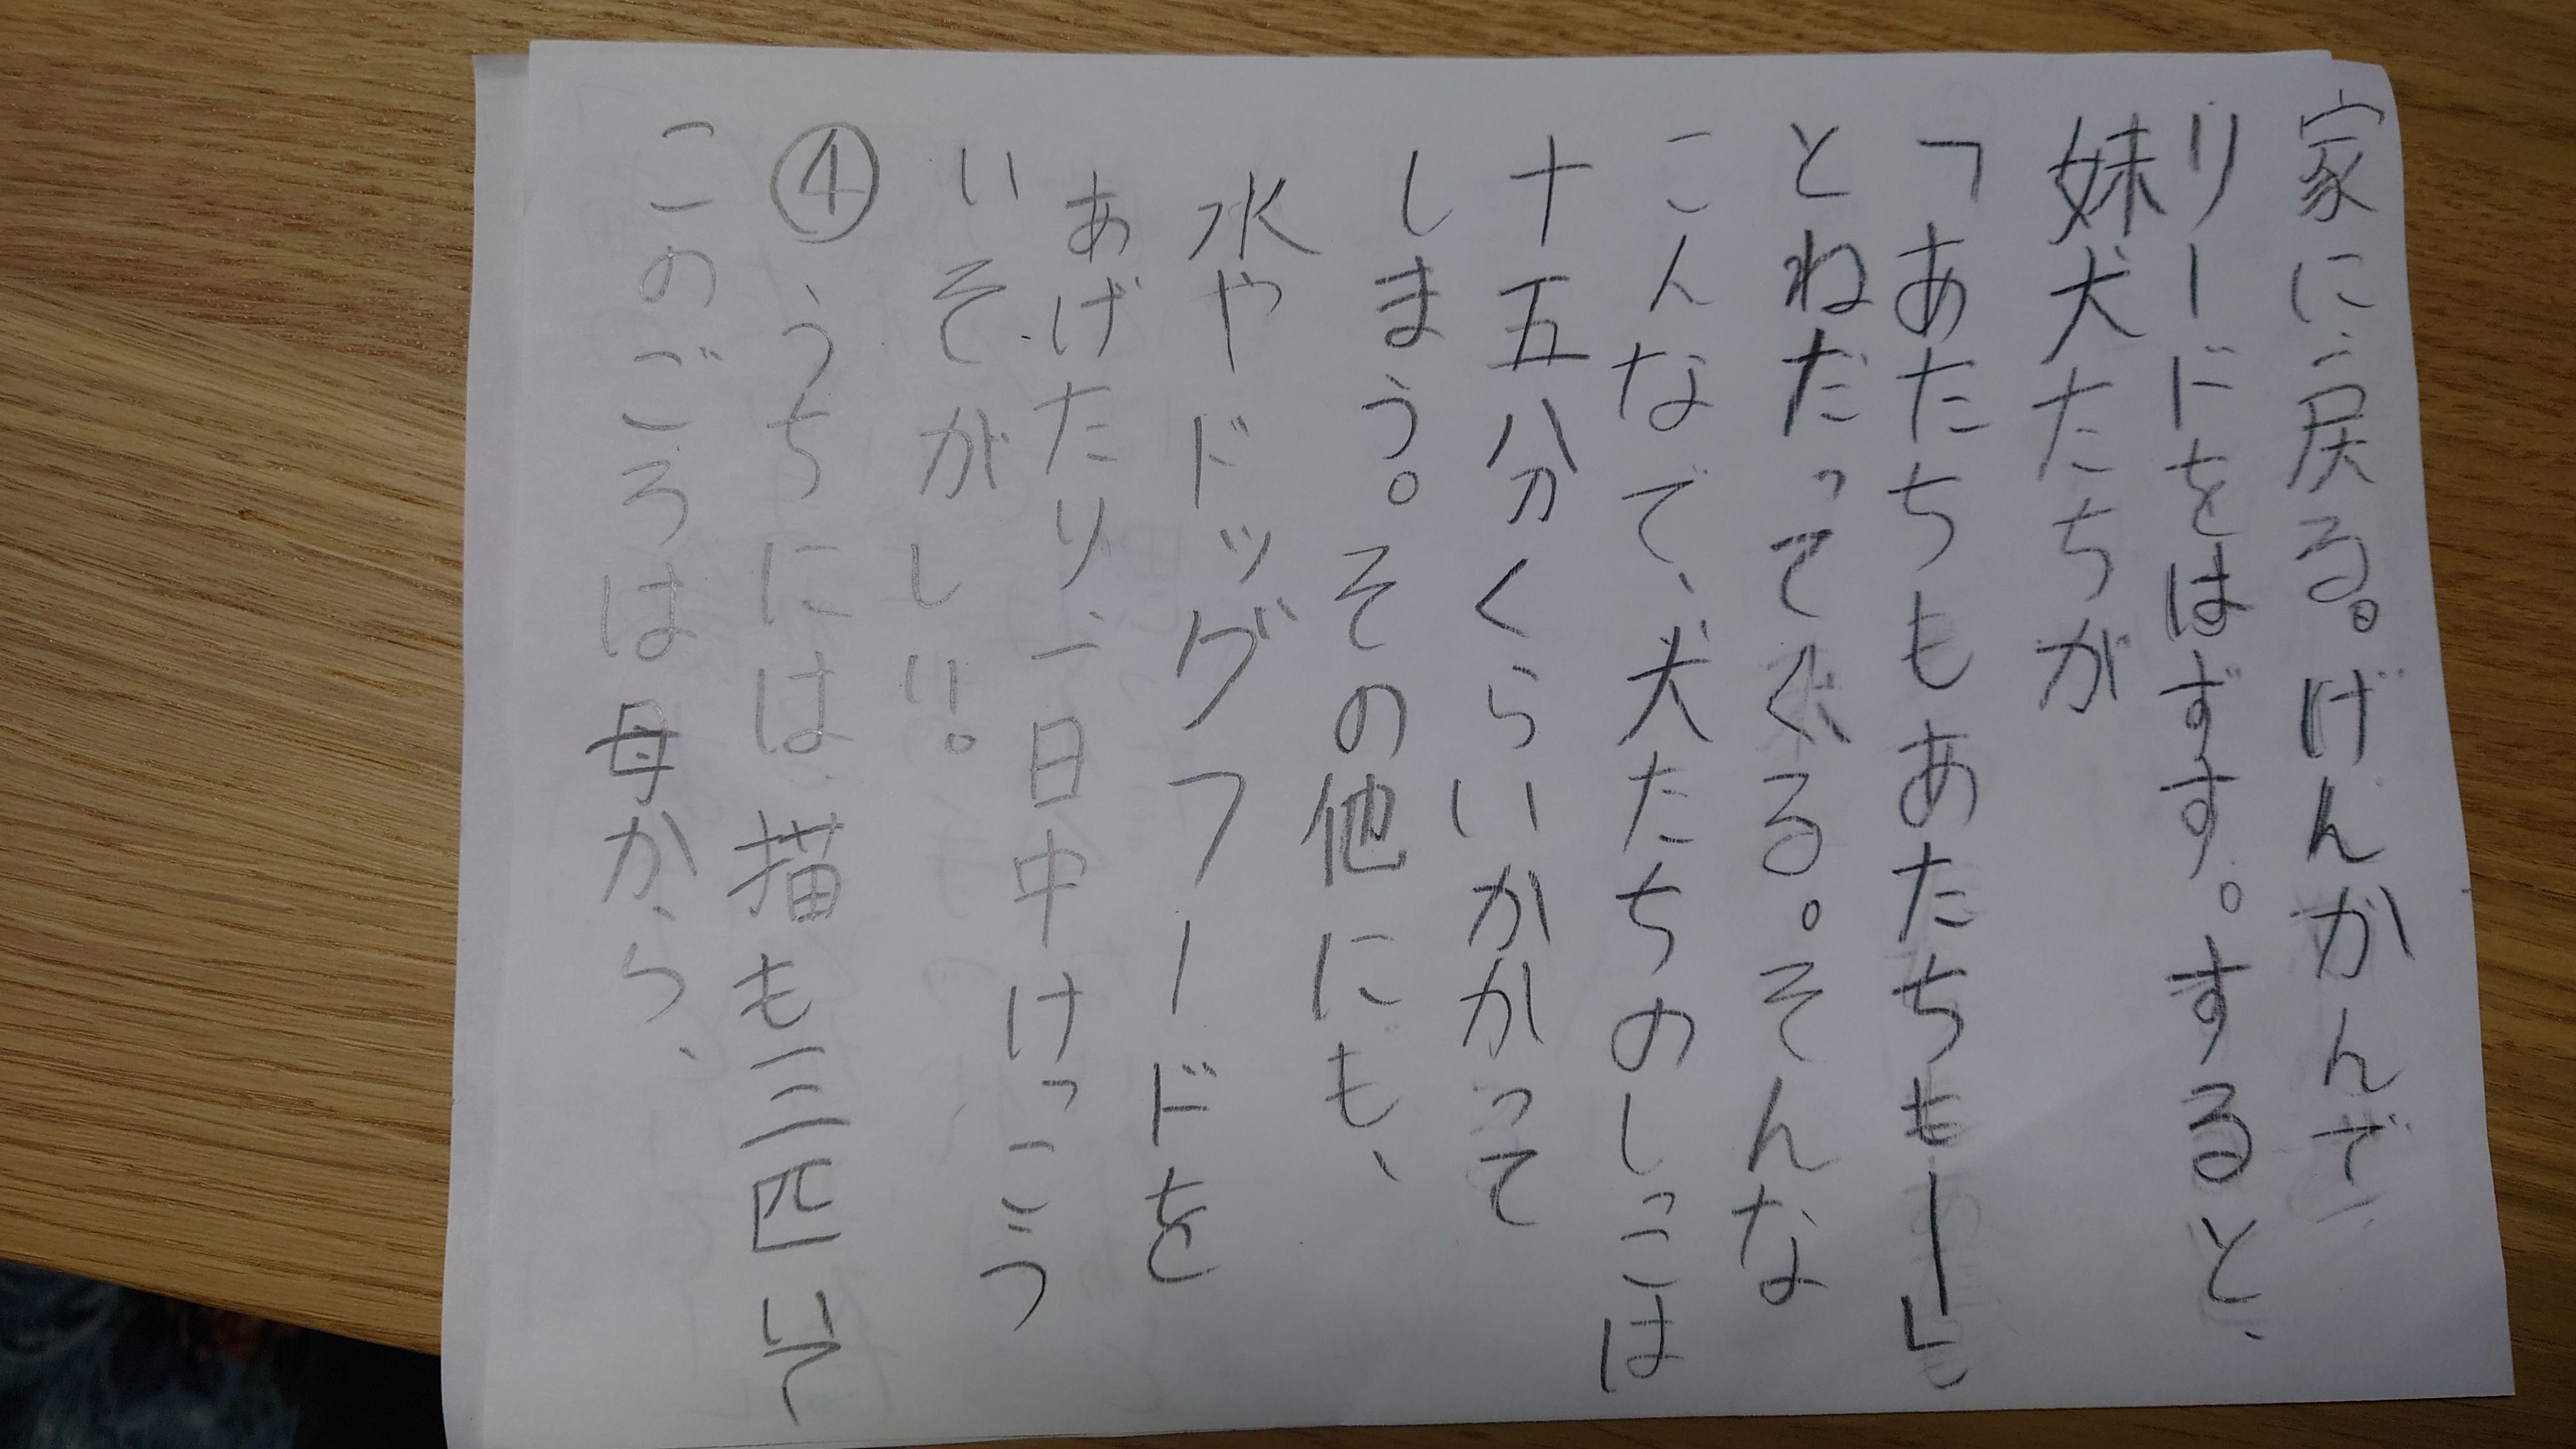 家に戻る。げんかんで
リードをはずす。すると、
妹犬たちが
「あたちもあたちもー」
とねだってくる。そんな
こんなで、犬たちのしっこは
十五分くらいかかって
しまう。その他にも、
水やドッグフードを
あげたり、一日中けっこう
いそがしい。
④うちには描も三匹いて
このごろは母から、